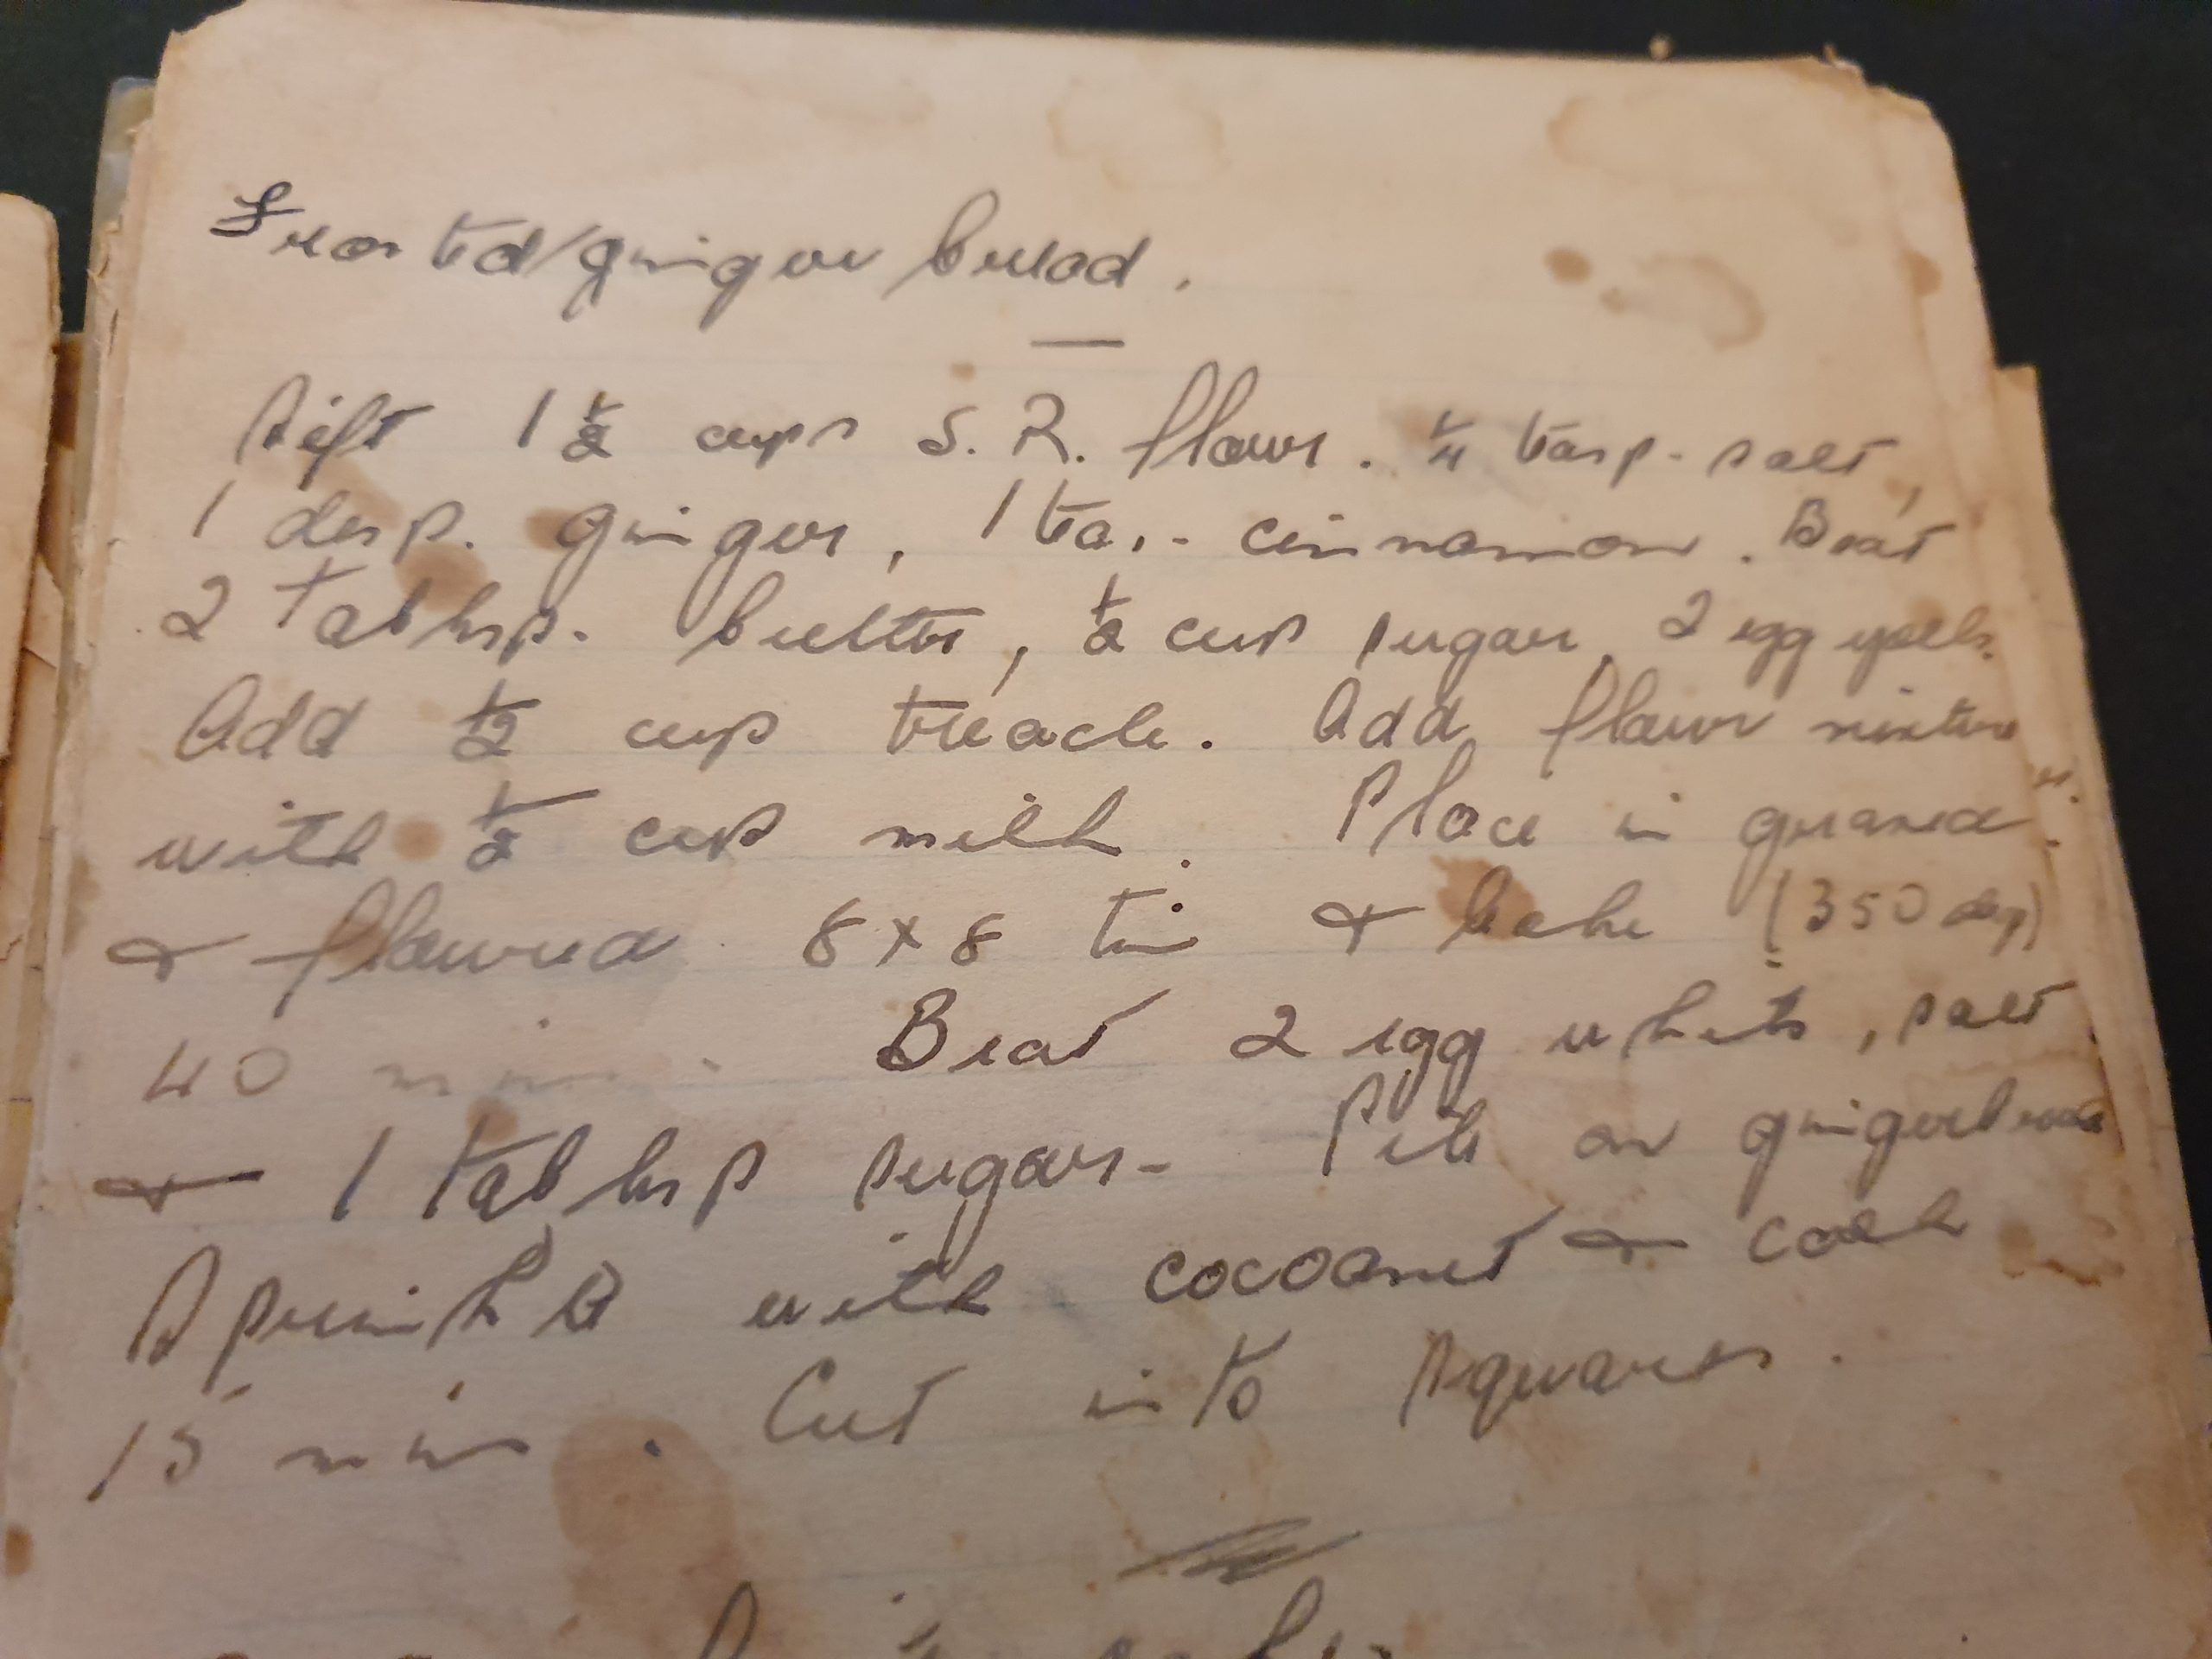 Frosted ginger bread.
Sift 1 1/2 cups S. R. flour. 1/4 teasp. salt,
1 desp. ginger, 1 tea.- cinnamon. Beat
2 Tablesp. butter, 1/2 cup sugar, 2 egg yolks.
Add 1/2 cup treacle. Add flour mixture
with 1/2 cup milk. Place in greased
& floured 8 x 8 tin & bake (350 deg)
40 min. Beat 2 egg whites, salt
& 1 tablesp sugar- Pile on gingerbread
Sprinkle with cocoanut & cook
15 min. Cut into squares.